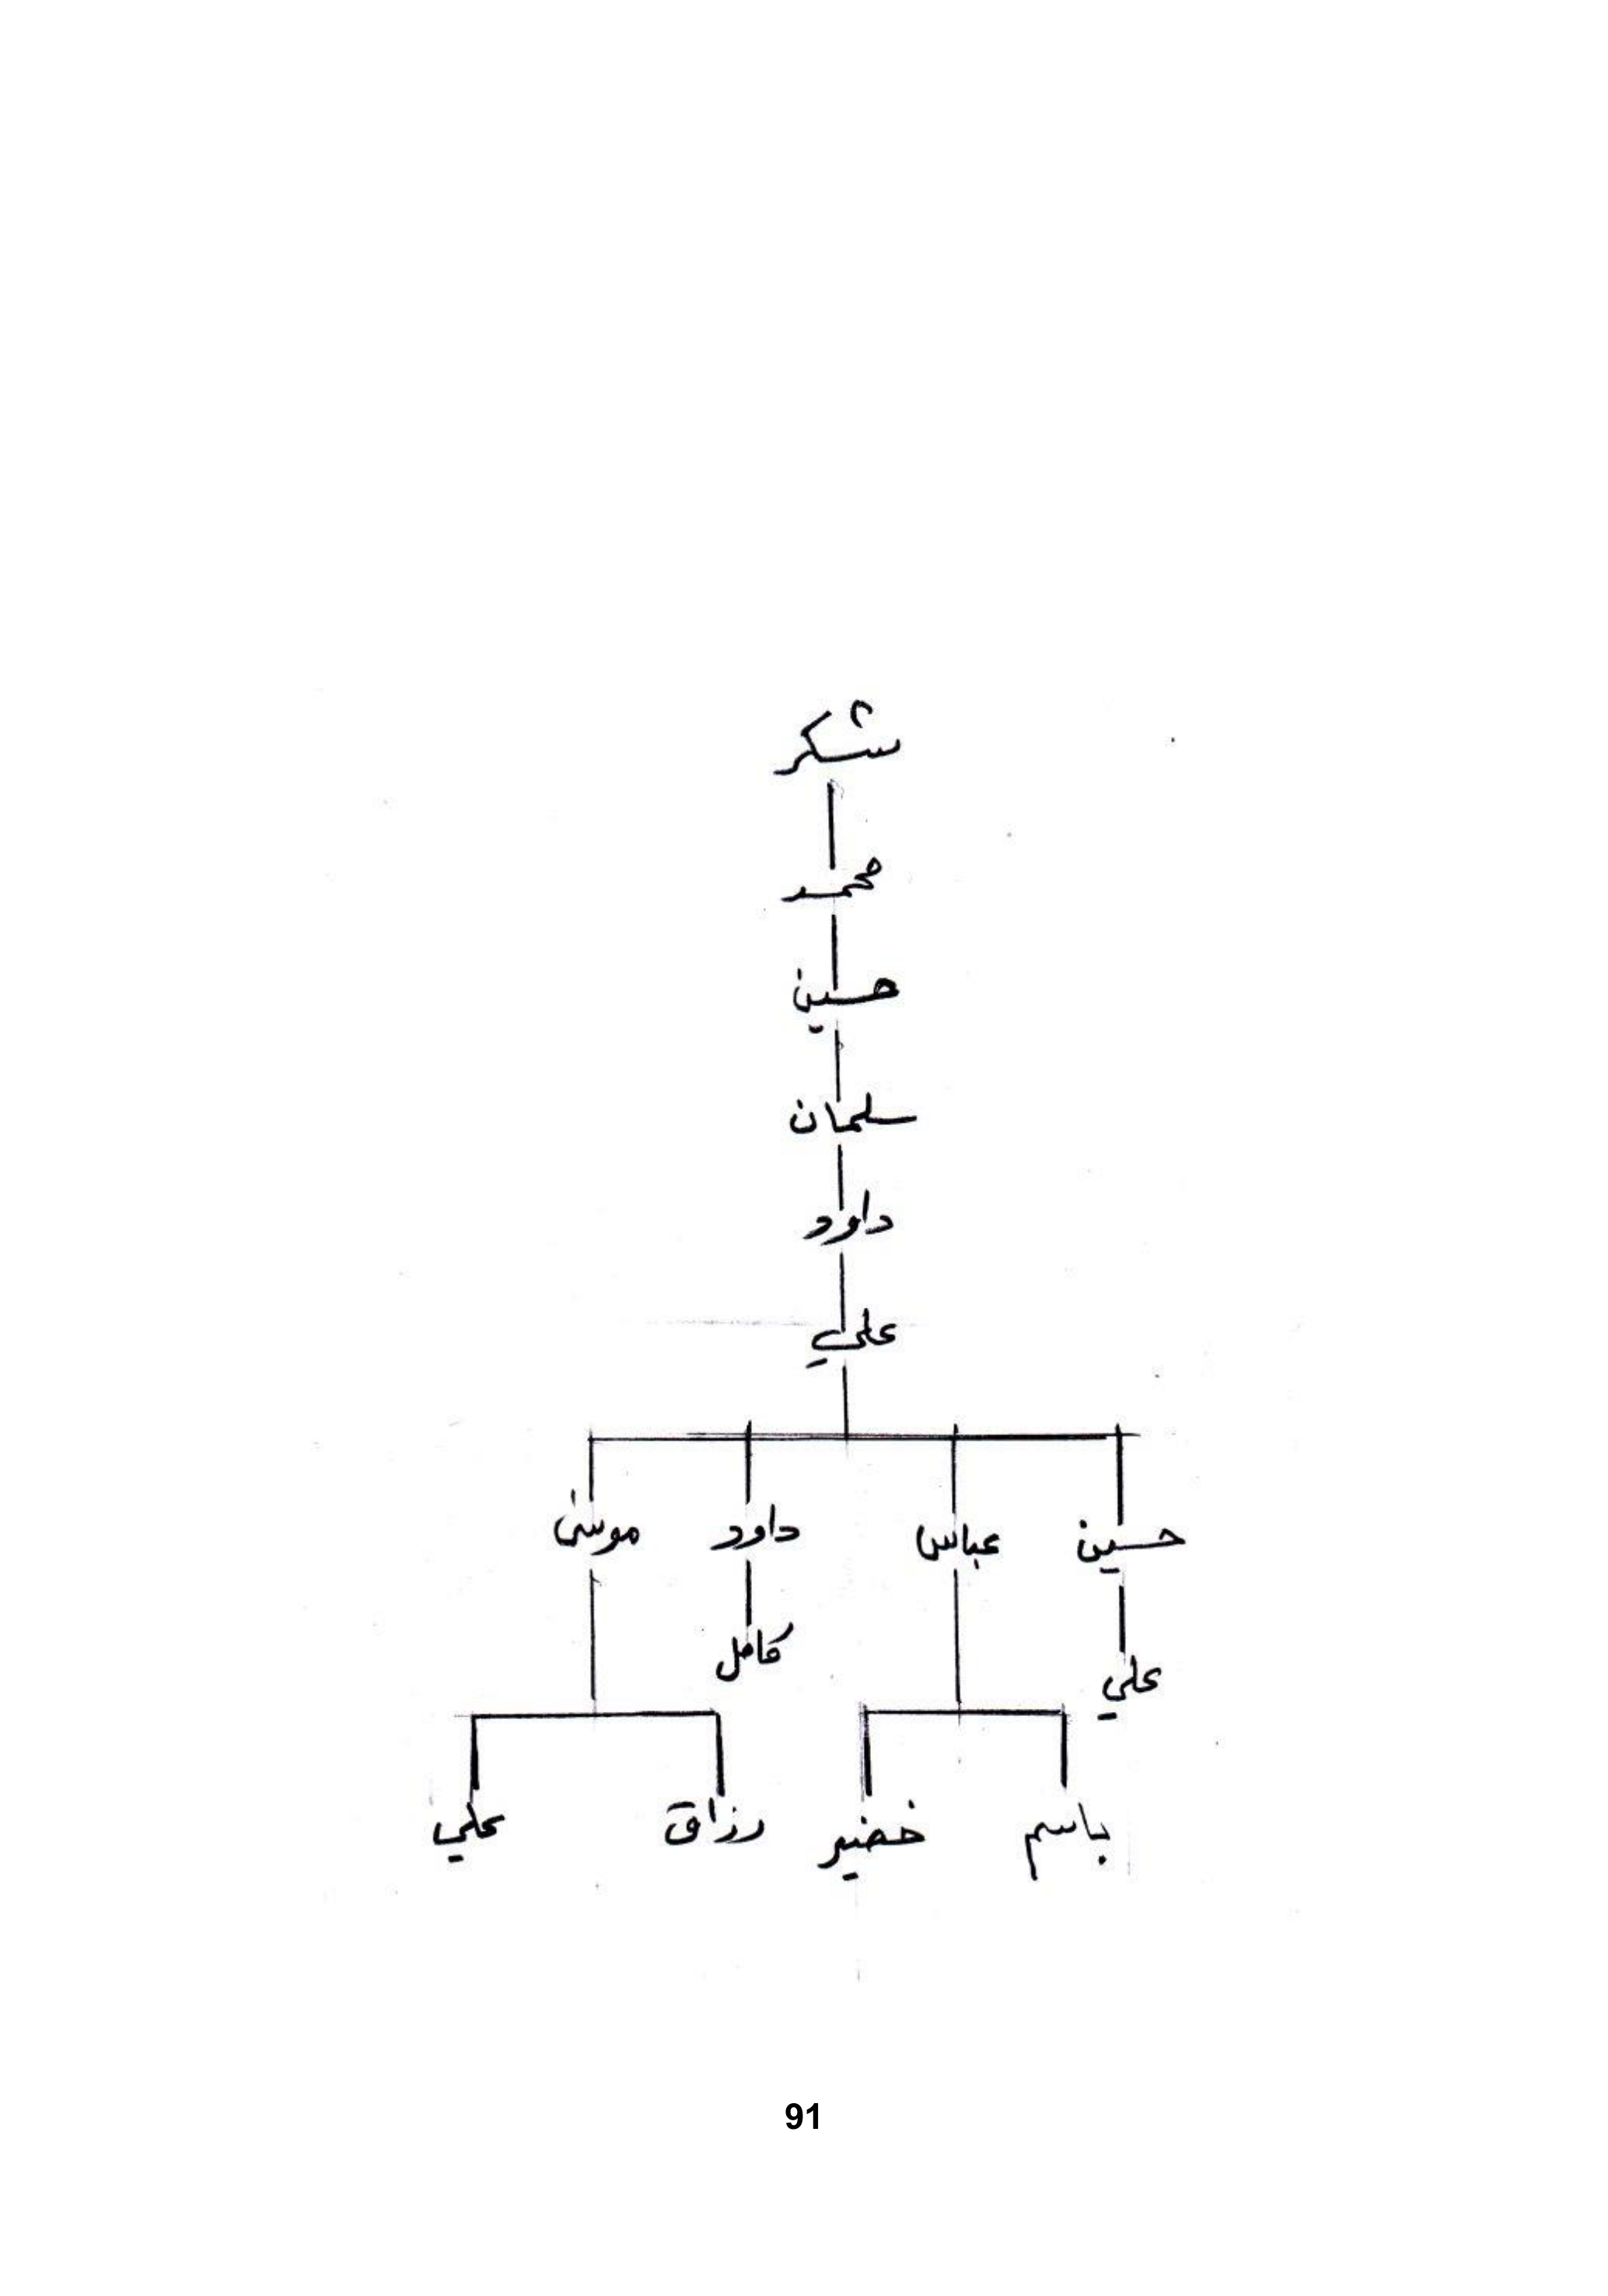 شكر
محمد
حسين
سلمان
داود
علي
حسين عباس داود موسى
علي كامل
باسم خضير رزاق علي
91